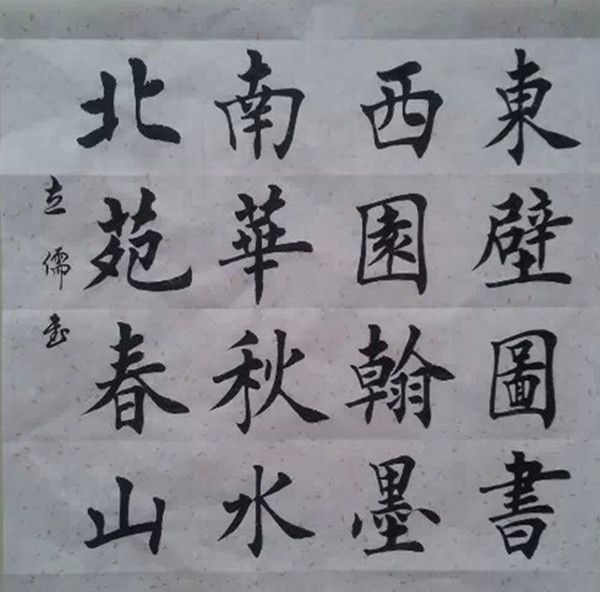 東壁圖書
西園翰墨
南華秋水
北苑春山
立儒书